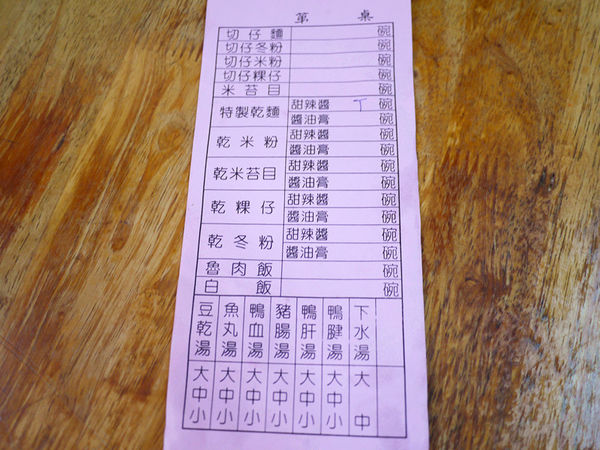 第 桌
切仔麵 碗
切仔冬粉 碗
切仔米粉 碗
切仔粿仔 碗
米苔目 碗
特製乾麵 甜辣醬 丅 碗
醬油膏 碗
乾米粉 甜辣醬 碗
醬油膏 碗
乾米苔目 甜辣醬 碗
醬油膏 碗
乾粿仔 甜辣醬 碗
醬油膏 碗
乾冬粉 甜辣醬 碗
醬油膏 碗
魯肉飯 碗
白飯 碗
豆乾湯 大中小
魚丸湯 大中小
鴨血湯 大中小
豬腸湯 大中小
鴨肝湯 大中小
鴨腱湯 大中小
下水湯 大中